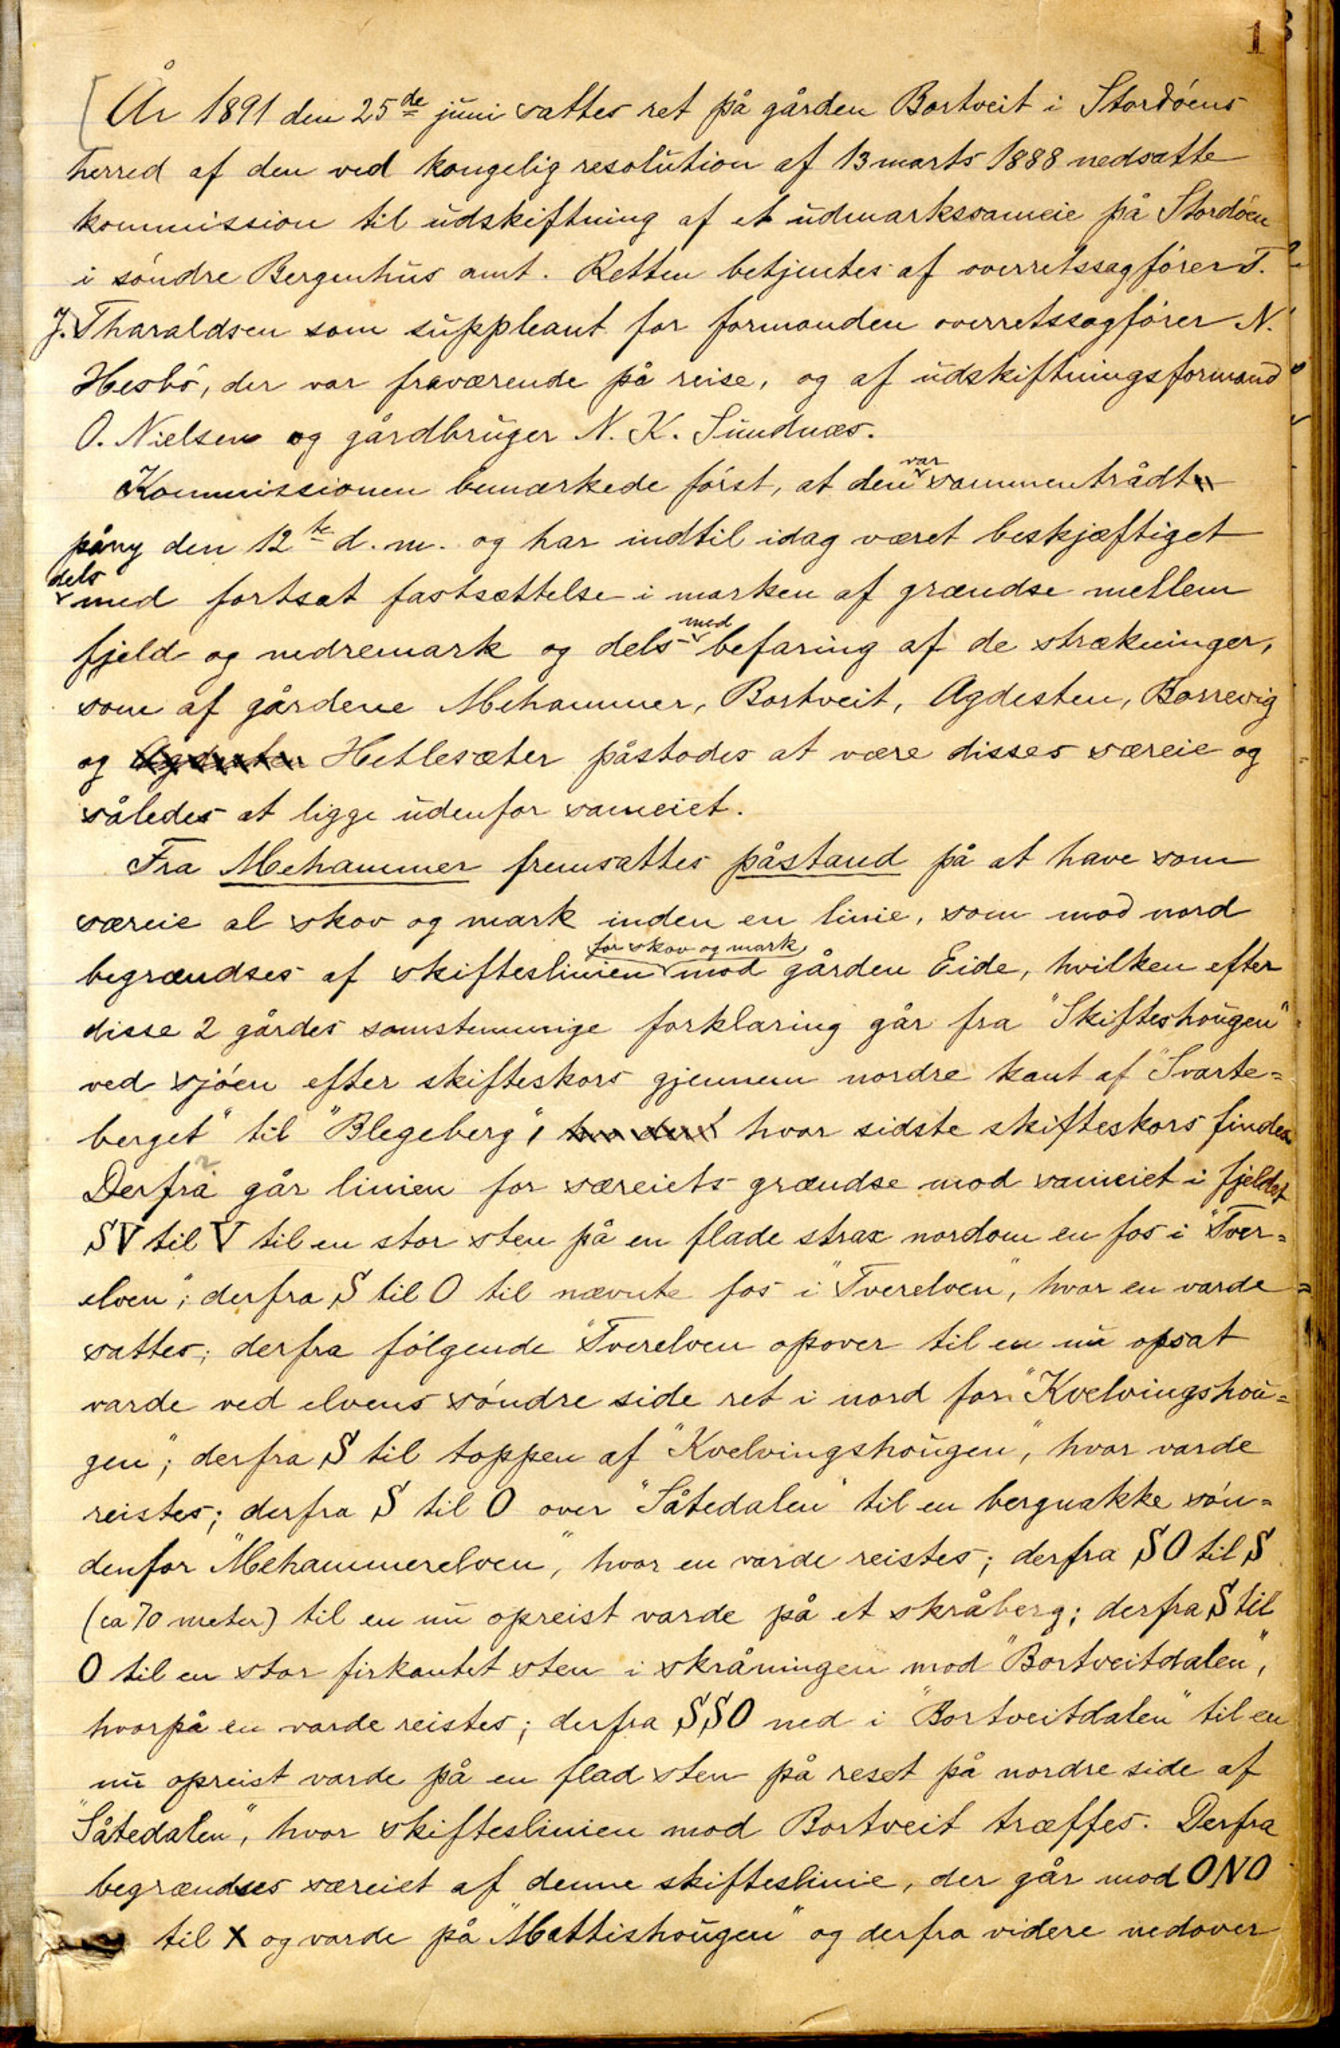 1
År 1891 den 25de juni sattes ret på gården Bortveit i Stordøens
herred af den ved kongelig resolution af 13 marts 1888 nedsatte
kommission til udskiftning af et udmarkssameie på Stordøen
i søndre Bergenhus amt. Retten betjentes af overretssagfører T.
J. Tharaldsen som suppleant for formanden overretssagfører N.
Hesbø, der var fraværende på reise, og af udskiftningsformand
O. Nielsen og gårdbruger N. K. Sundnæs.
Kommissionen bemærkede først, at den var sammentrådt
påny den 12te d. m. og har indtil idag været beskjæftiget
dels med fortsat fastsættelse i marken af grændse mellem
fjeld og nedremark og dels med befaring af de strækninger,
som af gårdene Mehammer, Bortveit, Agdesten, Borrevig
og Agdesten Hetlesæter påstodes at være disses særeie og
således at ligge udenfor sameiet.
Fra Mehammer fremsattes påstand på at have som
særeie al skov og mark inden en linie, som mod nord
begrændses af skifteslinien for skov og mark mod gården Eide, hvilken efter
disse 2 gårdes samstemmige forklaring går fra "Skifteshougen"
ved sjøen efter skifteskors gjennem nordre kant af "Svarte=
berget" til "Blegeberg", hvor sidste skifteskors findes
Derfra går linien for særeiets grændse mod sameiet i fjeldet
SV til V til en stor sten på en flade strax nordom en fos i "Tver=
elven"; derfra S til O til nævnte fos i "Tverelven", hvor en varde
sattes; derfra følgende "Tverelven opover til en nu opsat
varde ved elvens søndre side ret i nord for "Kvelvingshou=
gen"; derfra S til toppen af "Kvelvingshougen", hvor varde
reistes; derfra S til O over "Såtedalen" til en bergnakke søn=
denfor "Mehammerelven", hvor en varde reistes; derfra SO til S
(ca 70 meter) til en nu opreist varde på et skråberg; derfra S til
O til en stor firkantet sten i skråningen mod "Bortveitdalen",
hvorpå en varde reistes; derfra SSO ned i "Bortveitdalen" til en
nu opreist varde på en flad sten på reset på nordre side af
"Såtedalen", hvor skifteslinien mod Bortveit træffes. Derfra
begrændses særeiet af denne skifteslinie, der går mod ONO
til X og varde på "Mattishougen" og derfra videre nedover